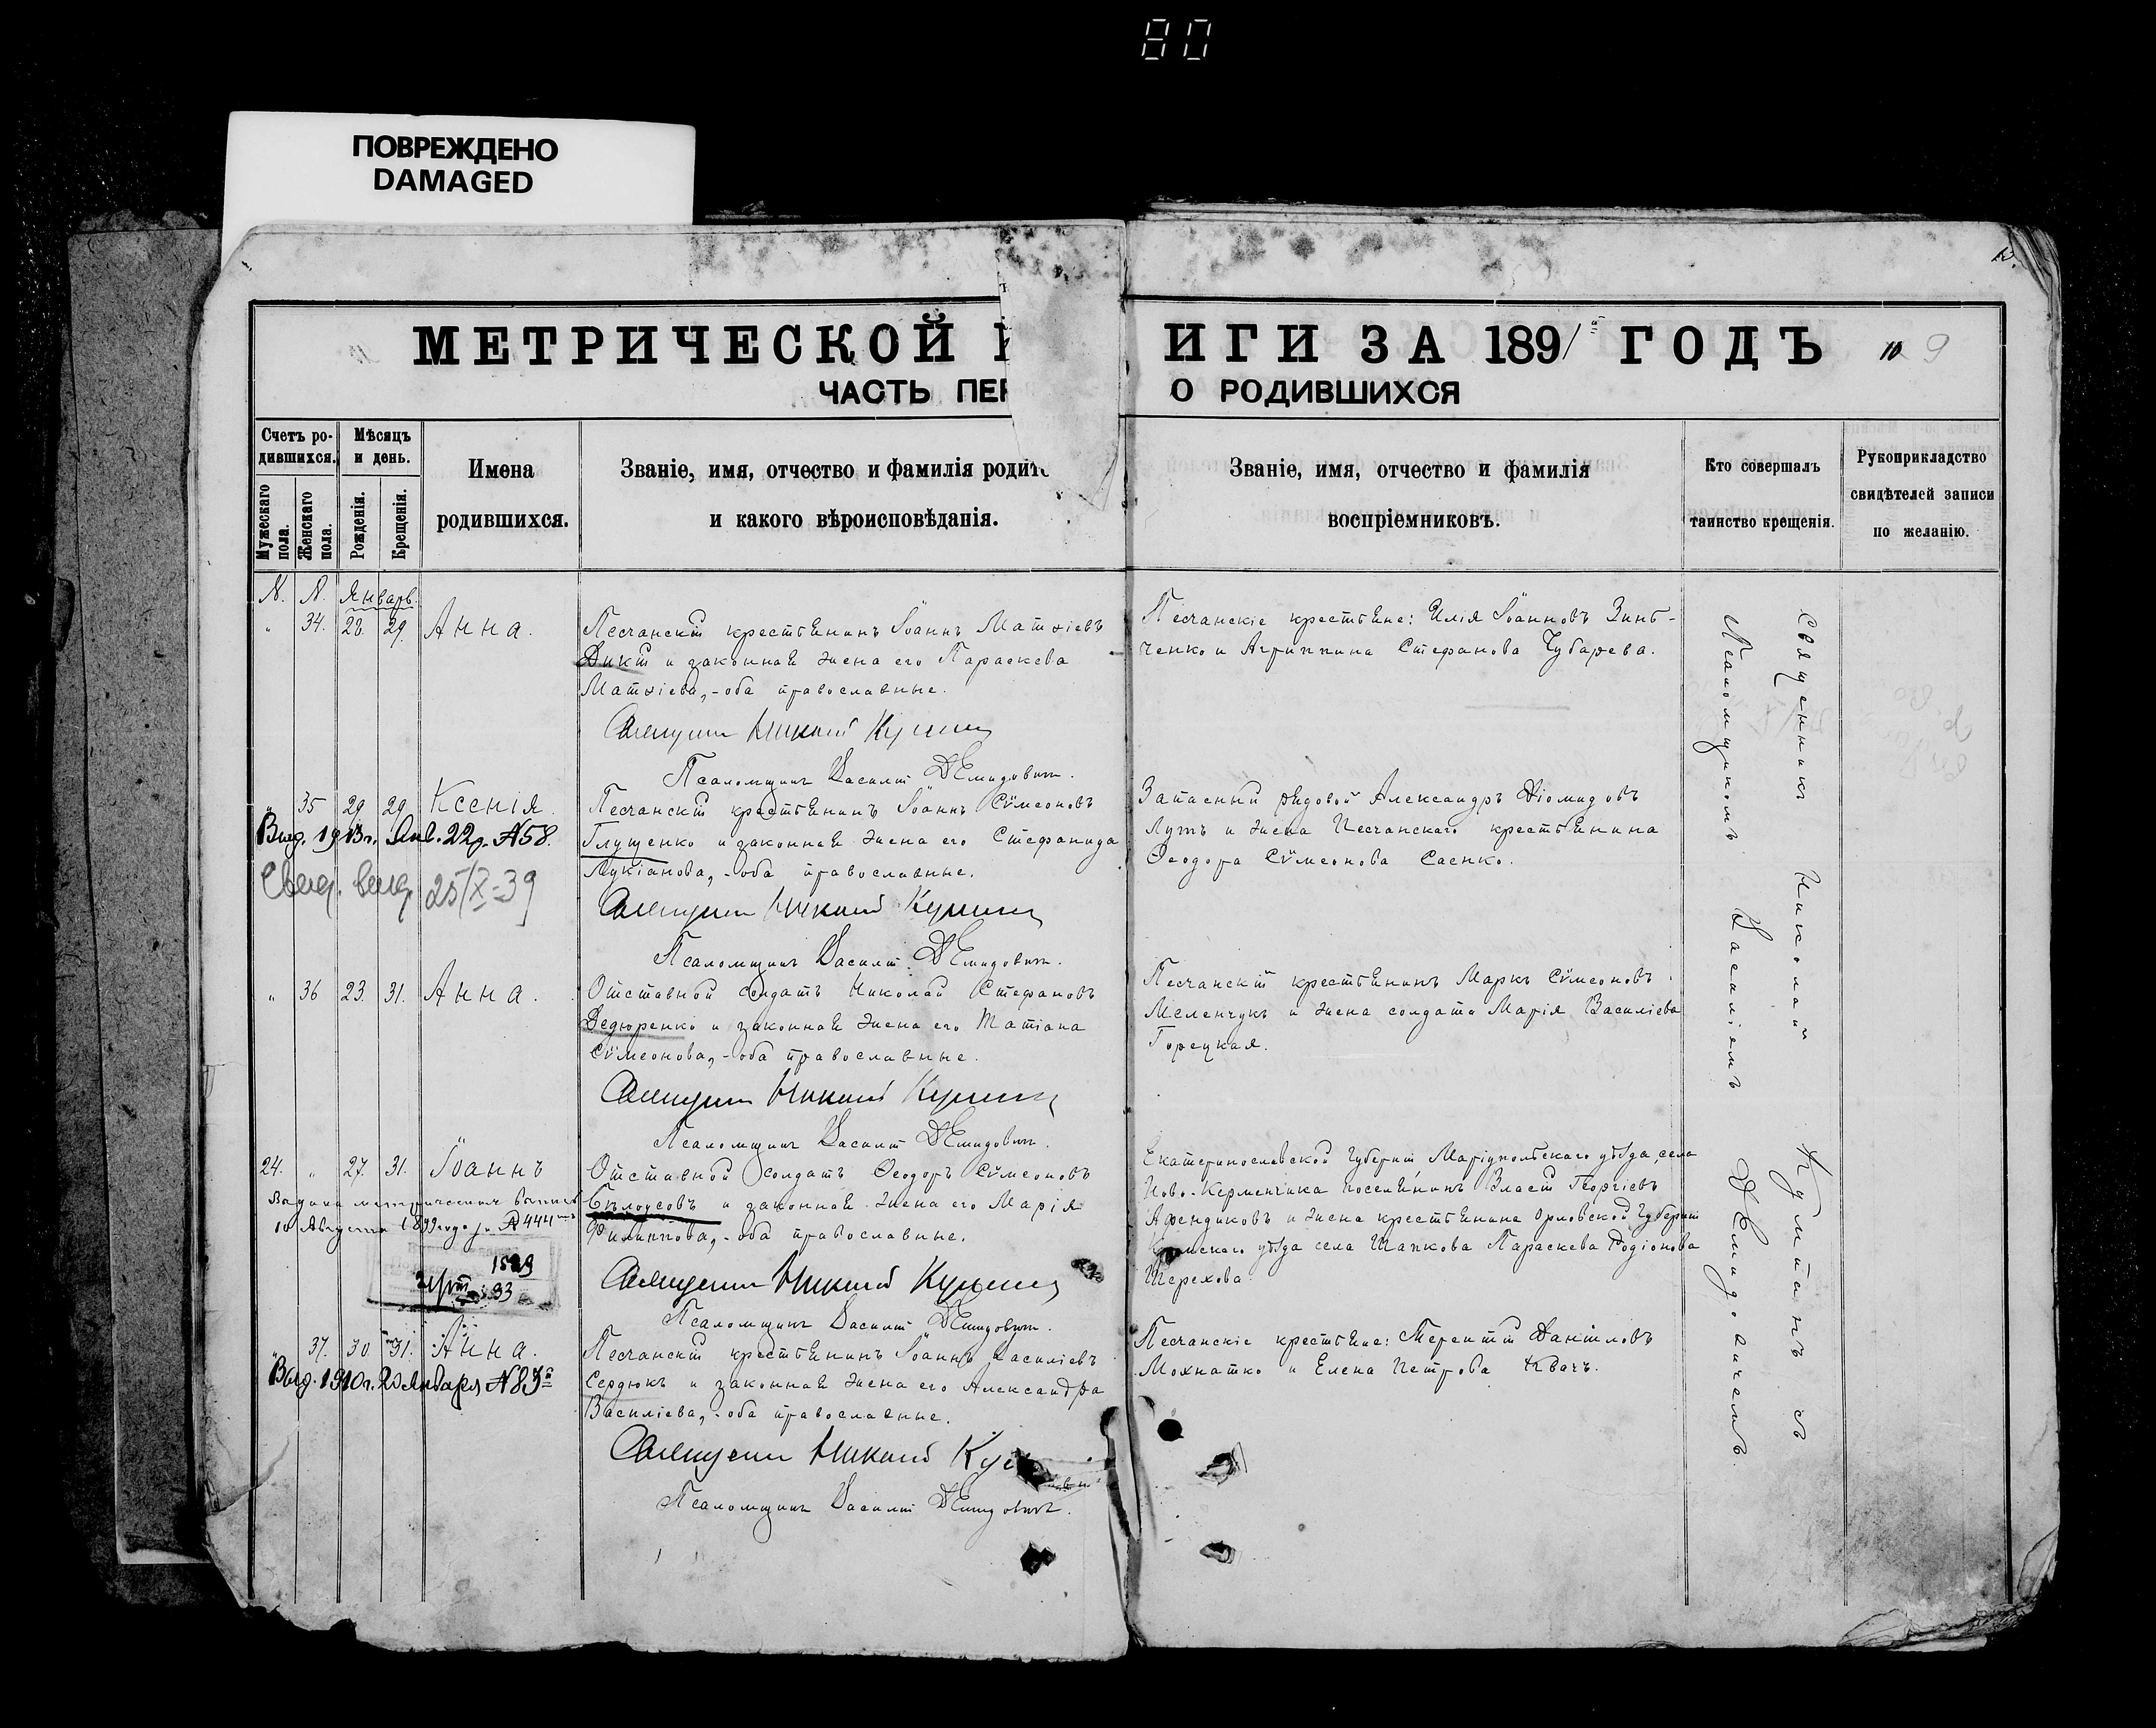 80
ПОВРЕЖДЕНО
DAMAGED
МЕТРИЧЕСКОЙ ИГИ ЗА 1891 ГОДЪ 10 9
ЧАСТЬ ПЕР О РОДИВШИХСЯ
Счетъ ро-
дившихся.
Мѣсяцъ
и день.
Мужескаго пола.
Женскаго пола.
Рожденія.
Крещенія.
Имена
родившихся.
Званіе, имя, отчество и фамилія родит
и какого вѣроисповѣданія.
Званіе, имя, отчество и фамилія
воспріемниковъ.
Кто совершалъ
таинство крещенія.
Рукоприкладство
свидѣтелей записи
по желанію.
N. N. Январь.
" 34. 28. 29. Анна.
Песчанскій крестьянинъ Іоаннъ Матѳіевъ
Дикій и законная жена его Параскева
Матѳіева, - оба православные.
Священникъ Николай
Псаломщикъ Василій Демидовичъ.
Песчанскіе крестьяне: Илія Іоанновъ Зинь-
ченко и Агриппина Стефанова Чубарева.
" 35 29 29 Ксенія.
Выд. 1913г. Янв. 22д. №58.
Свид. выд. 25/X-39
Песчанскій крестьянинъ Іоаннъ Сѵмеоновъ
Глущенко и законная жена его Стефанида
Лукіанова, - оба православные.
Священникъ Николай
Псаломщикъ Василій Демидовичъ.
Запасный рядовой Александръ Діомидовъ
Лутъ и жена Песчанскаго крестьянина
Ѳеодора Сѵмеонова Саенко.
" 36 23. 31. Анна.
Отставной солдатъ Николай Стефановъ
Дедюренко и законная жена его Татіана
Сѵмеонова, - оба православные.
Священникъ Николай
Псаломщикъ Василій Демидовичъ.
Песчанскій крестьянинъ Маркъ Сѵмеоновъ
Меленчукъ и жена солдата Марія Василіева
Горецкая.
24. " 27. 31. Іоаннъ
10 Августа 1899 года №444
Отставной солдатъ Ѳеодоръ Сѵмеоновъ
Бѣлоусовъ и законная жена его Марія
Филиппова, - оба православные.
Священникъ Николай
Псаломщикъ Василій Демидовичъ.
Екатеринославской Губерніи Маріупольскаго уѣзда, села
Ново-Керменчика поселянинъ Власій Георгіевъ
Афендиковъ и жена крестьянина Орловской Губерніи
уѣзда села Шапкова Параскева Родіонова
Шерехова.
" 37. 30 31. Анна.
Выд. 1910г. 20 Января №83
Песчанскій крестьянинъ Іоаннъ Василіевъ
Сердюкъ и законная жена его Александра
Василіева, - оба православные.
Священникъ Николай
Псаломщикъ Василій Демидовичъ.
Песчанскіе крестьяне: Терентій Даніиловъ
Мохнатко и Елена Петрова Квачъ.
Священникъ Николай съ
Псаломщикомъ Василіемъ Демидовичемъ.